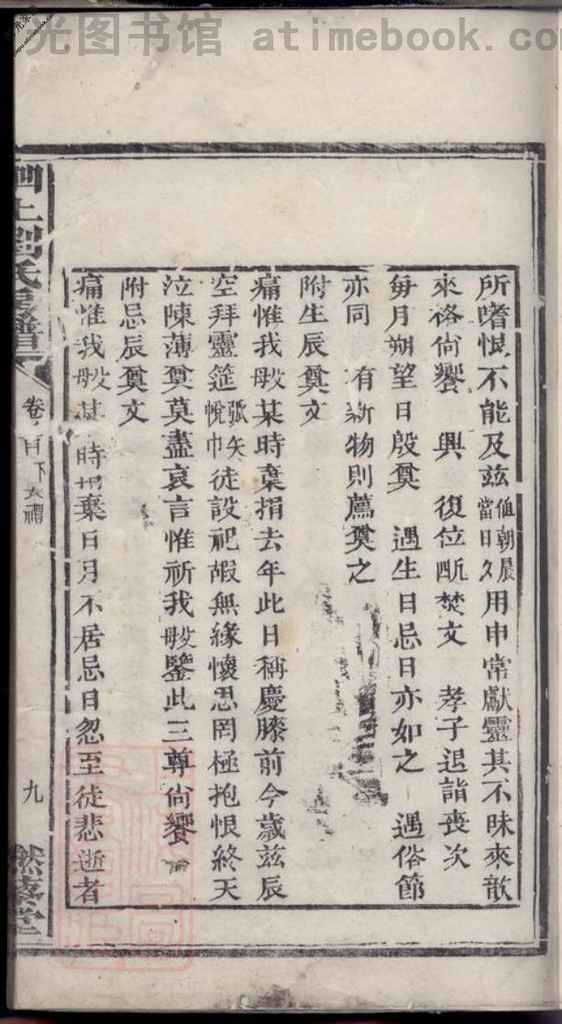 光图书馆 atimebook.co
所嗜恨不能及茲值朝晨當日夕用申常獻靈其不昧來歆
來格尙饗 興 復位 焚文 孝子退詣喪次
每月朔望日殷奠 遇生日忌日亦如之 遇俗節
亦同 有新物則薦奠之
附生辰奠文
痛惟我某時棄捐去年此日稱慶膝前今歲茲辰
空拜靈筵弧矢帨巾徒設祀嘏無緣懷思罔極抱恨終天
泣陳薄奠莫盡哀言惟祈我鑒此三尊尙饗
附忌辰奠文
痛惟我某時捐棄日月不居忌日忽至徒悲逝者
上劉氏 譜
卷 下 禮
九
堂